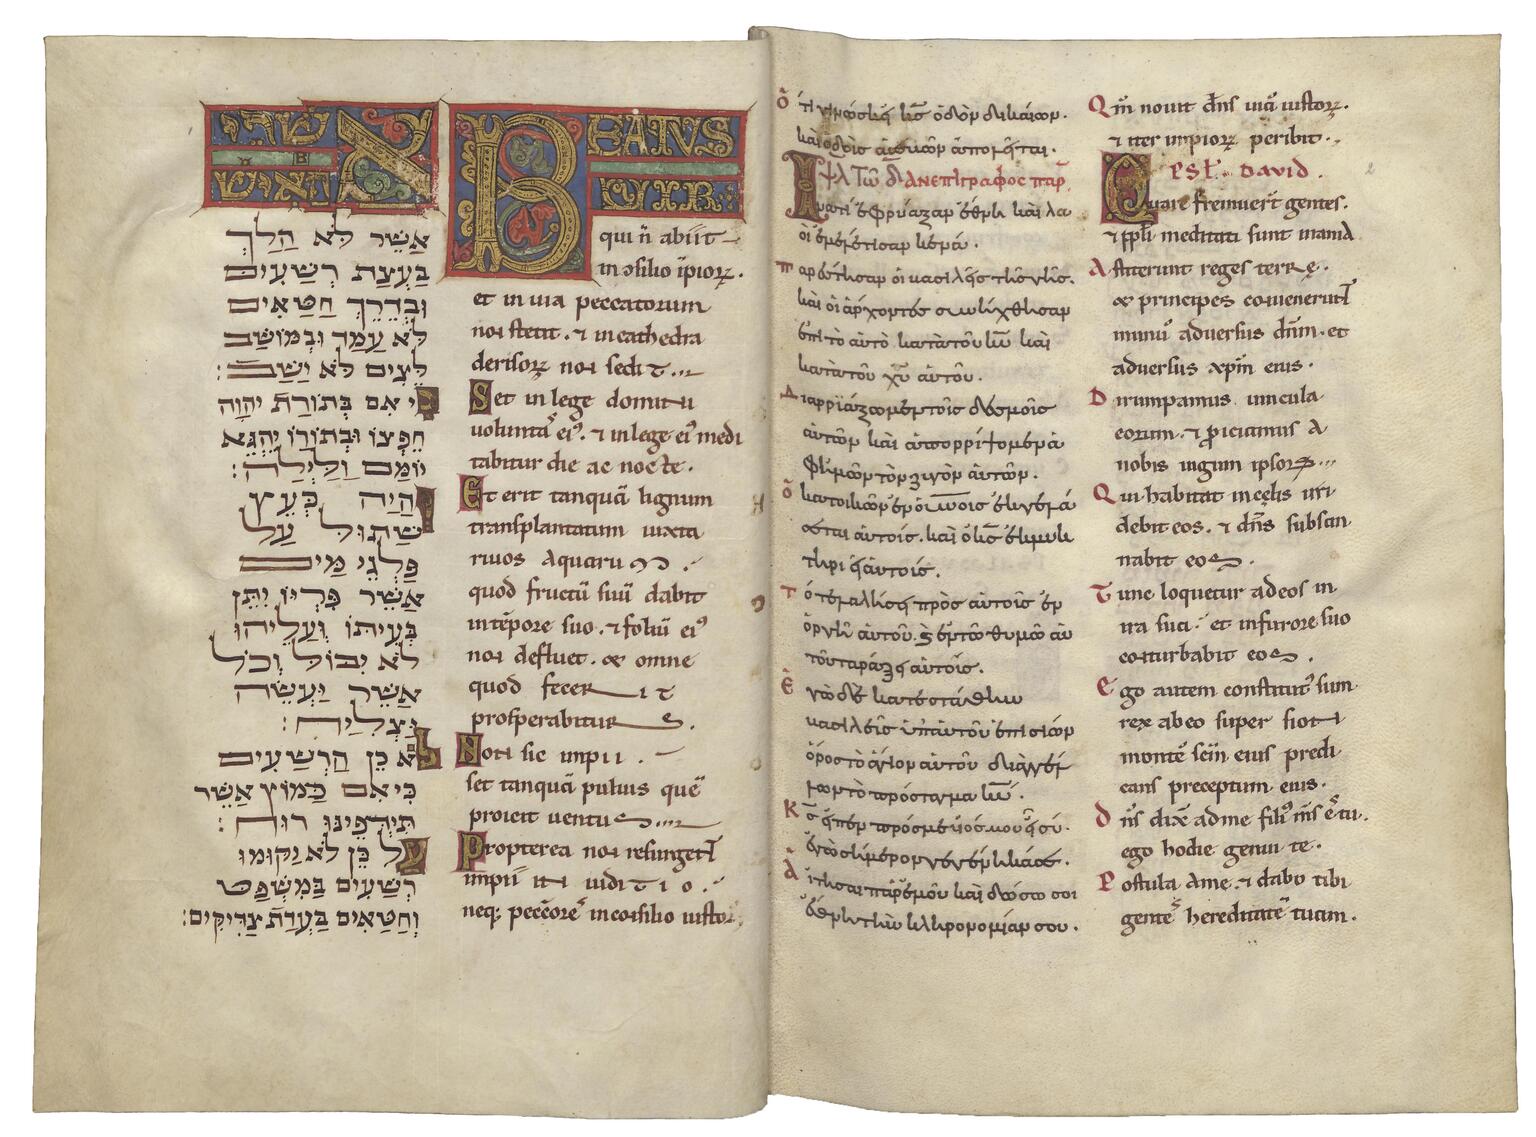 אשרי
האיש
אֲשֶׁר לֹא הָלַךְ
בַּעֲצַת רְשָׁעִים
וּבְדֶרֶךְ חַטָּאִים
לֹא עָמַד וּבְמוֹשַׁב
לֵצִים לֹא יָשַׁב׃
כִּי אִם בְּתוֹרַת יְהוָה
חֶפְצוֹ וּבְתוֹרָתוֹ יֶהְגֶּא
יוֹמָם וָלַיְלָה׃
וְהָיָה כְּעֵץ
שָׁתוּל עַל
פַּלְגֵי מַיִם
אֲשֶׁר פִּרְיוֹ יִתֵּן
בְּעִיתּוֹ וְעָלֵיהוּ
לֹא יִבּוֹל וְכֹל
אֲשֶׁר יַעֲשֶׂה
יַצְלִיחַ׃
לֹא כֵן הָרְשָׁעִים
כִּי אִם כַּמוֹץ אֲשֶׁר
תִּדְּפֶינּוּ רוּחַ׃
עַל כֵּן לֹא יָקוּמוּ
רְשָׁעִים בַּמִּשְׁפָּט
וְחַטָּאִים בַּעֲדַת צַדִּיקִים׃
BEATVS
VIR
qui n̄ abiit
in ꝯsilio īpioꝝ.
et in uia peccatorum
non stetit. & in cathedra
derisoꝝ non sedit...
Set in lege domini
uolunta᷒ ei᷒. & in lege ei᷒ medi
tabitur die ac nocte.
Et erit tanquā lignum
transplantatum iuxta
riuos aquarum.
quod fructū suū dabit
in tēpore suo. & foliū ei᷒
non defluet. & omne
quod fecerit
prosperabitur.
Non sic impii.
set tanquā puluis quē
proicit uentus...
Propterea non resurgent
impii in iuditio.
neq; peccōre᷒ in consilio iusto
Ὅτι γινώσκει κ̅ς̅ ὁδὸν δικαίων.
καὶ ὁδὸς ἀσεβῶν ἀπολεῖται.
ΨΑΛ Τῶ ΔΑ ΑΝΕΠΙΓΡΑΦΟΣ ΠΑΡ
Ἱνατί ἐφρύαξαν ἔθνη καὶ λα
οὶ ἐμελέτισαν κενά.
Παρέστησαν οἱ βασιλεῖς τῆς γῆς.
καὶ οἱ ἄρχοντες συνήχθησαν
ἐπὶ τὸ αὐτὸ κατὰ τοῦ κ̅υ̅ καὶ
κατὰ τοῦ χ̅υ̅ αὐτοῦ.
Διαρρίάξωμεν τοὺς δεσμοὺς
αὐτῶν καὶ ἀπορρίψομεν ἀ
φ ἡμῶν τὸν ζυγὸν αὐτῶν.
Ὁ κατοικῶν ἐν ο̅υ̅νοῖς ἐκγελά
σεται αὐτούς. καὶ ὁ κ̅ς̅ ἐκμυκ
τηριεῖ αὐτούς.
Τότε λαλήσει πρὸς αὐτοὺς ἐν
ὀργῇ αὐτοῦ. ϗ ἐν τῶ θυμῶ αὐ
τοῦ ταράξει αὐτούς.
Ἐγὼ δὲ κατεστάθην
βασιλεὺς ὑπ αὐτοῦ ἐπὶ σιὼν
ὄρος τὸ ἅγιον αὐτοῦ διαγγέλ
λων τὸ πρόσταγμα κ̅υ̅.
Κ̅ς̅ εἶπεν πρός με ὑιός μου εἶ σύ.
ἐγὼ σήμερον γεγέννικά σε.
Αἴτησαι παρ ἐμοῦ καὶ δώσω σοι
ἔθνη τὴν κληρονομίαν σου.
Qm̄ nouit dn̄s uiā iustoꝝ.
& iter impioꝝ peribit.
PSL. DAVID.
Quare fremuer̄t gentes.
& ppl̄i meditati sunt inania
Astiterunt reges terrę.
& principes conuenerunt
in unū aduersus dn̄m. et
aduersus xp̄m eius.
Dirumpamus uincula
eorum. & proiciamus a
nobis iugum ipsoꝝ...
Qui habitat in cęlis irri
debit eos. & dn̄s subsan
nabit eos.
Tunc loquetur ad eos in
ira sua. et in furore suo
conturbabit eos.
Ego autem constitut᷒ sum
rex ab eo super sion
montē scm̄ eius predi
cans preceptum eius.
Dn̄s dixit ad me fili᷒ m̄s es tu.
ego hodie genui te.
Postula a me. & dabo tibi
gente᷒ hereditatē tuam.